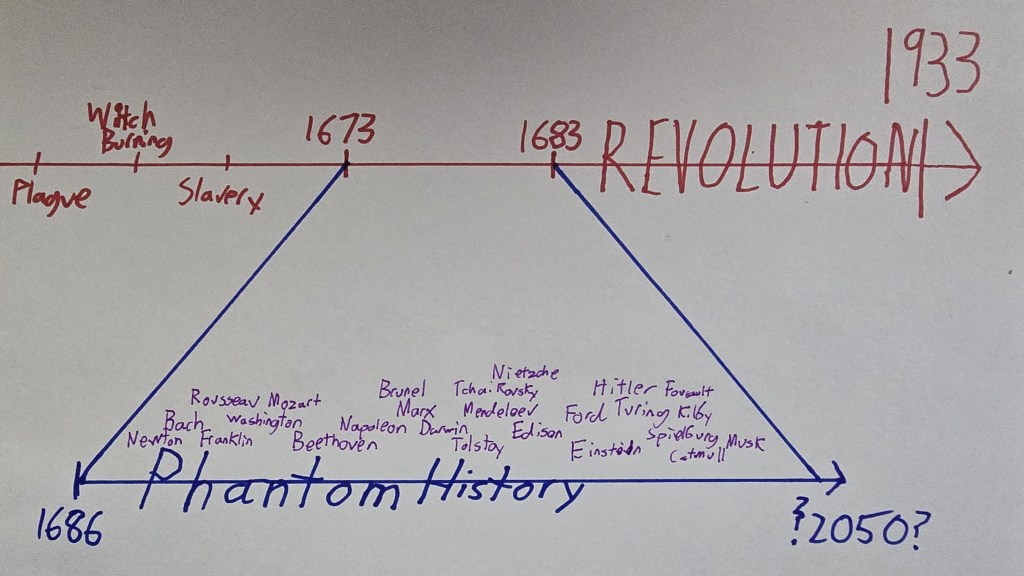 1933
Witch
Burning
1673
1683
REVOLUTION
Plague
Slavery
Nietzche
Brunel
Tchaikovsky
Hitler
Foucault
Rousseau
Mozart
Marx
Mendeleev
Ford
Turing
Kilby
Bach
Washington
Napoleon
Darwin
Edison
Spielburg
Musk
Newton
Franklin
Beethoven
Tolstoy
Einstein
Catmull
Phantom History
1686
?2050?